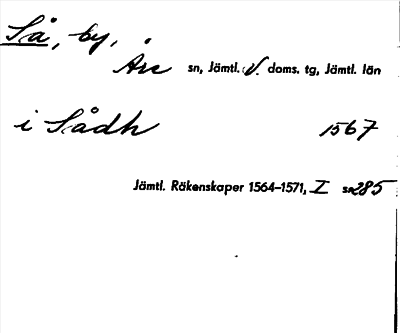 Så, by,
Åre sn, Jämtl. V. doms. tg, Jämtl. län
i Sådh 1567
Jämtl. Räkenskaper 1564–1571, I s. 285